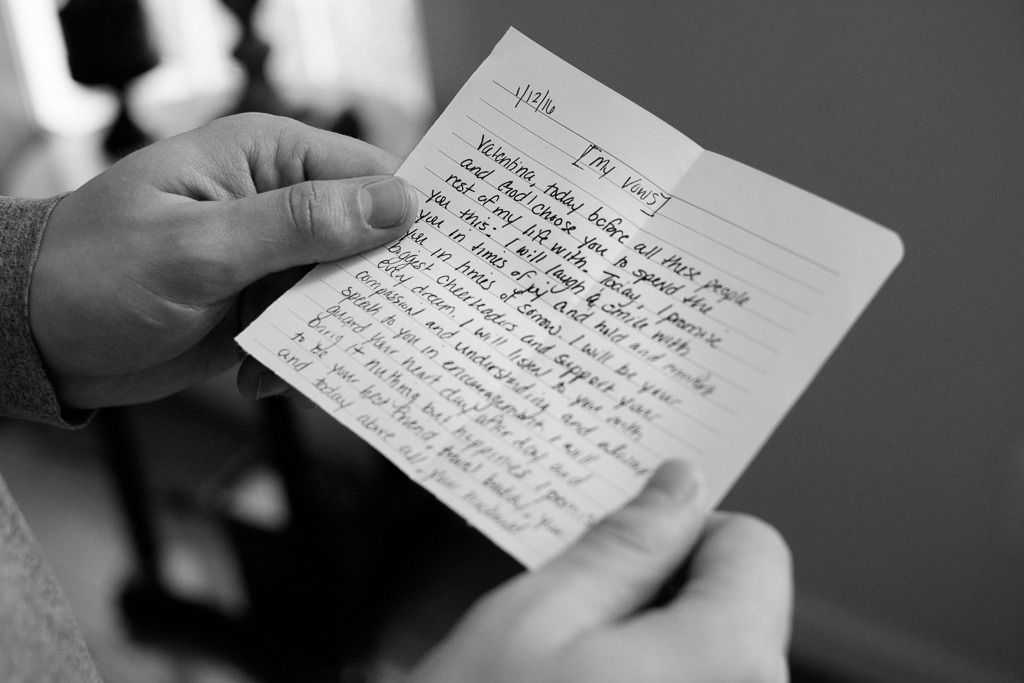 1/12/16
[My Vows]
Valentina, today before all these people
and God I choose you to spend the
rest of my life with. Today, I promise
you this: I will laugh & smile with
you in times of joy and hold and
you in times of sorrow. I will be your
biggest cheerleader and support your
every dream. I will listen to you with
compassion and understanding and always
speak to you in encouragement. I will
guard your heart day after day and
bring it nothing but happiness. I promise
to be your best friend, travel buddy, your
and today above all, your husband